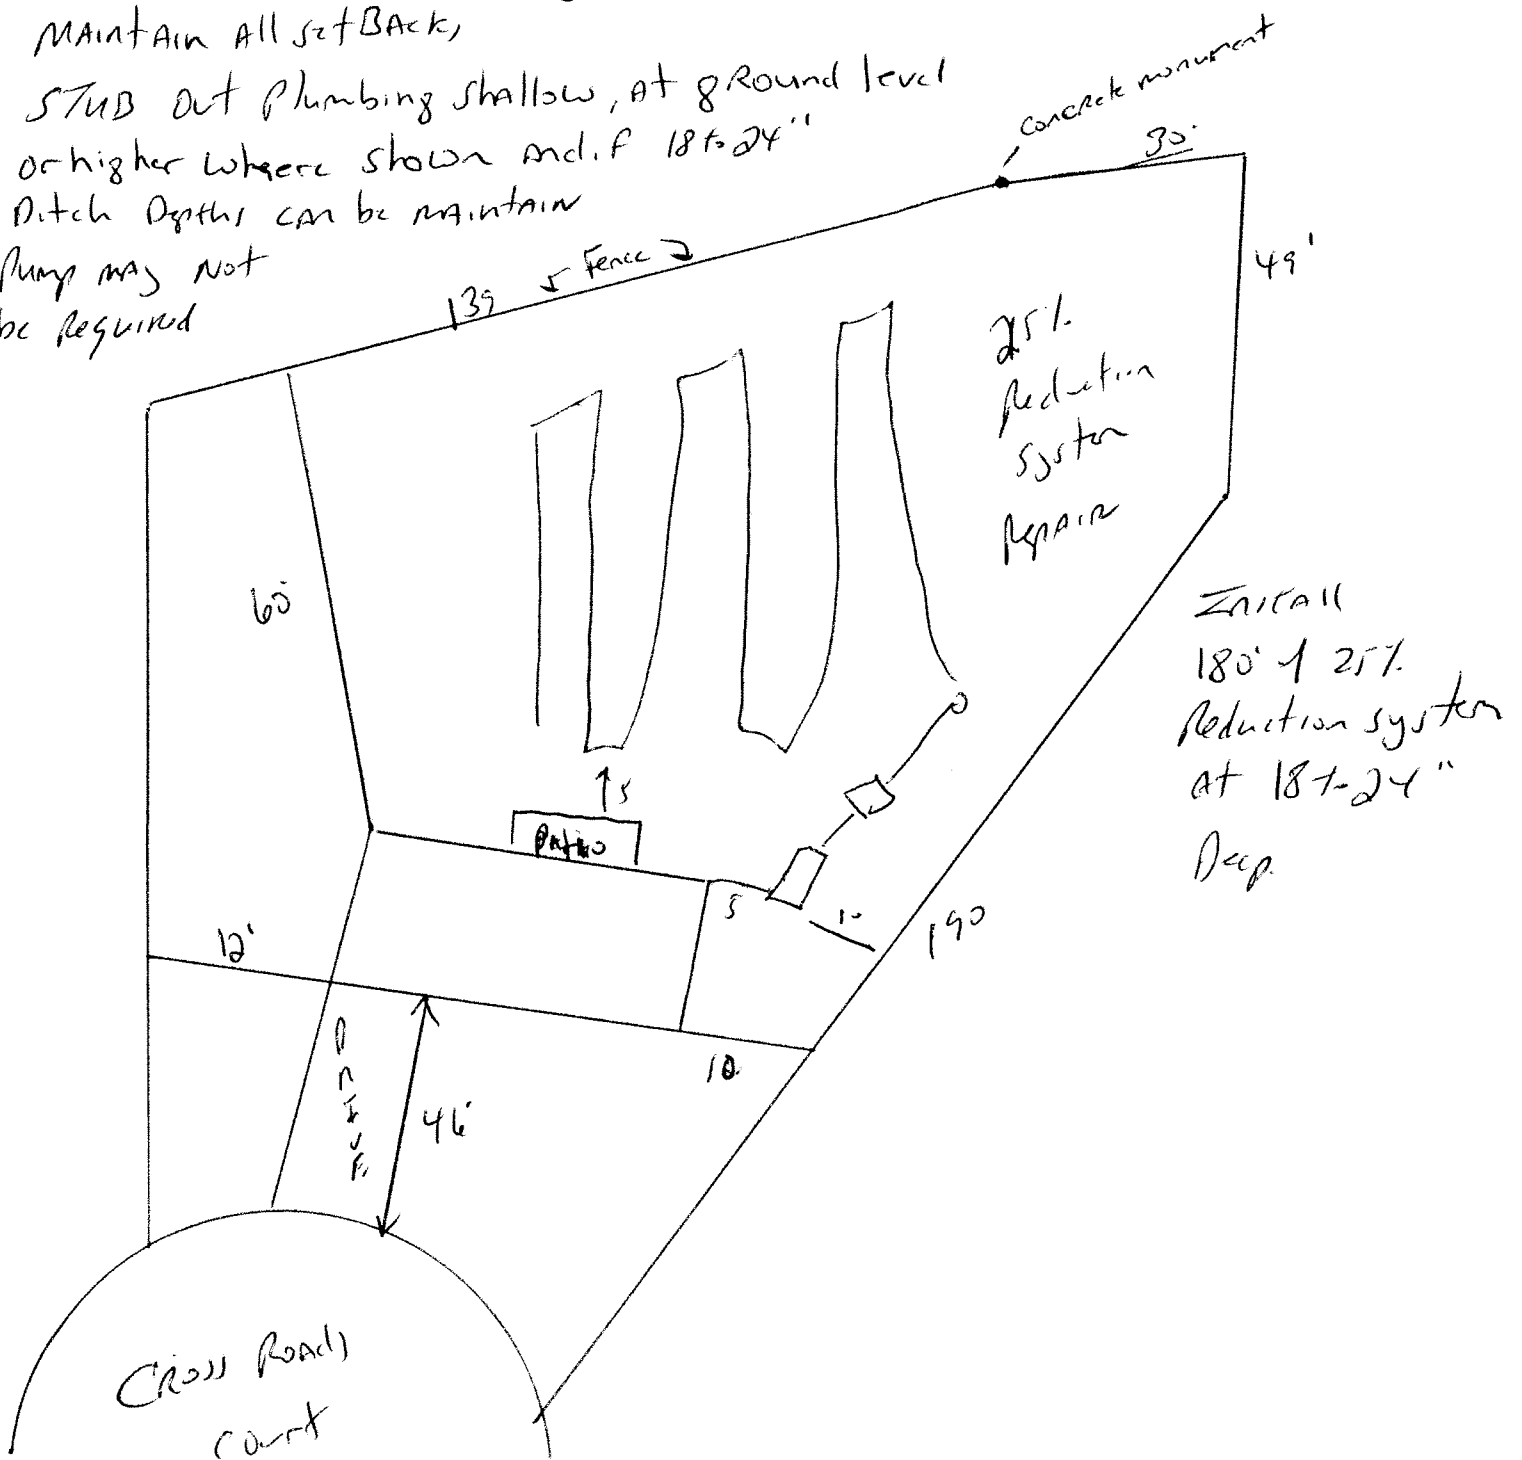 MAINTAIN All setBACK,
STUB Out Plumbing shallow, At gRound level
or higher where shown And if 18 to 24"
Ditch Depths can be MAINTAIN
Pump may Not
be Required
concrete monument
30'
49'
139
Fence
25%
Reduction
system
Repair
60'
Install
180' of 25%
Reduction system
At 18 to 24"
Deep
5
Patio
5
10
190
12'
10
DRIVE
46'
Cross Roads
Court